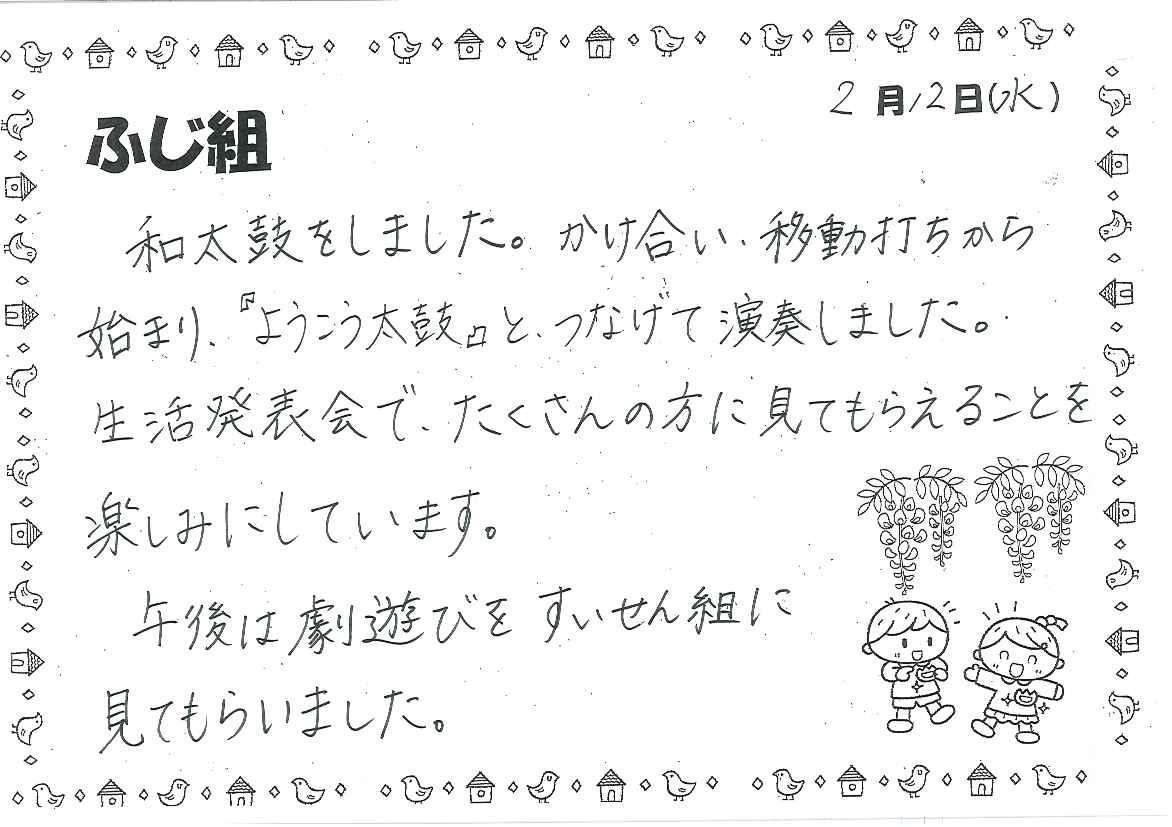 2月12日(水)
ふじ組
和太鼓をしました。かけ合い、移動打ちから
始まり、『ようこう太鼓』と、つなげて演奏しました。
生活発表会で、たくさんの方に見てもらえることを
楽しみにしています。
午後は劇遊びをすいせん組に
見てもらいました。